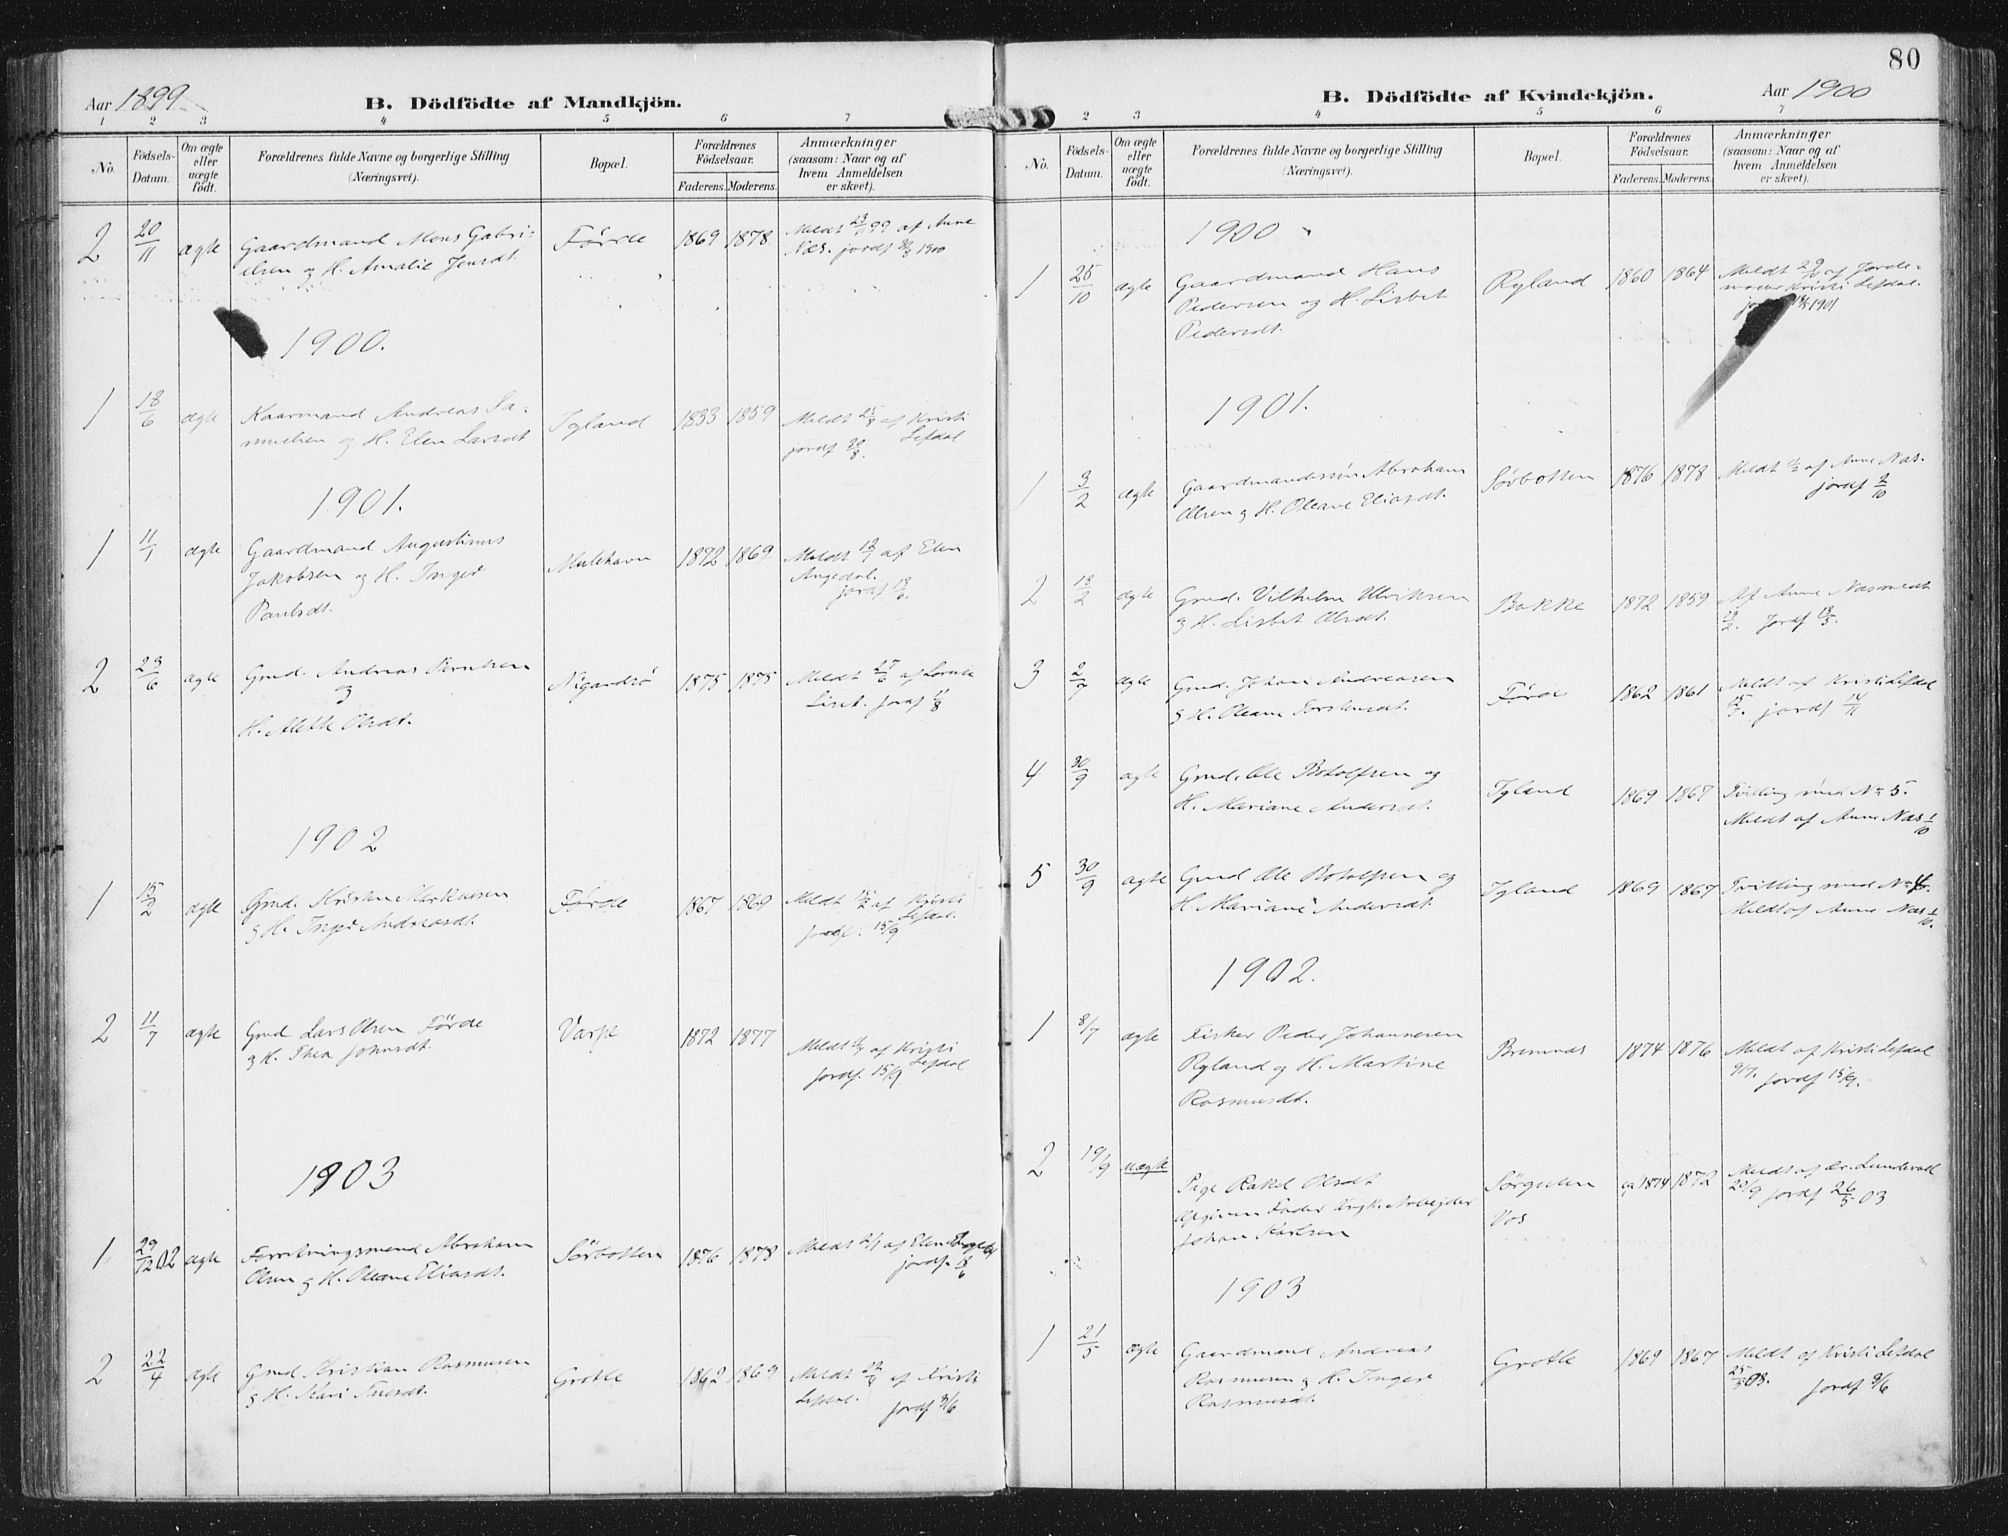 Aar 1899
B. Dödfödte af Mandkjön.
1 2 3 4 5 6 7
No. Födsels-Datum. Om ægte eller uægte födt. Forældrenes fulde Navne og borgerlige Stilling (Næringsvei). Bopæl. Forældrenes Födselsaar. Faderens. Moderens. Anmærkninger (saasom: Naar og af hvem Anmeldelsen er skeet).
2 20/11 ægte Gaardmand Mons Gabri- Førde 1869 1878 Meldt 99 af Anne
elsen og H. Amalie Jensdt. Næs. jordf 1900
1900.
1 18/6 ægte Kaarmand Andreas Sa- Igland 1833 1859 Meldt af Kristi
muelsen og H. Elen Larsdt Lefdal
jordf
1901.
1 11/1 ægte Gaardmand Augustinus Mulehavn 1872 1869 Meldt af Elen
Jakobsen og H. Inger Angedal.
Paulsdt. jordf
2 23/6 ægte Gmd. Andreas 1875 1875 Meldt 27/6 af
&
H. Mette Olsdt. jordf 11/8
1902
1 15/2 ægte Gmd. Kristen Markussen Førde 1867 1869 Meldt af Kristi
& H. Inger Andreasdt. Lefdal.
jordf. 15/9
2 11/7 ægte Gmd Lars Olsen Førde Varpe 1872 1877
& H. Thea Johnsdt. Meldt af Kristi
Lefdal
jordf. 15/9
1903
1 29/12 02 ægte Forretningsmand Abraham Sørbotten 1876 1878 Meldt 2/1 af Elen
Olsen & H. Oleane Eliasdt. jordf.
2 22/4 ægte Gmd Kristian Rasmusen Grotle 1862 1869 Meldt af Kristi
& H. Kari Lefdal.
jordf
80
B. Dödfödte af Kvindekjön.
Aar 1900
2 3 4 5 6 7
No. Födsels-Datum. Om ægte eller uægte födt. Forældrenes fulde Navne og borgerlige Stilling (Næringsvei). Bopæl. Forældrenes Födselsaar. Faderens. Moderens. Anmærkninger (saasom: Naar og af hvem Anmeldelsen er skeet).
1900
1 25/10 ægte Gaardmand Hans Ryland 1860 1864 Meldt af Jorde-
Pedersen og H. Lisbet moder Kristi Lefdal.
Pedersdt. 1901
1901.
1 3/2 ægte Gaardmandssøn Abraham Sørbotten 1876 1878 Meldt af Anne Næs.
Olsen & H. Oleane Eliasdt. jordf
2 18/2 ægte Gmd. Vilhelm Ulriksen Bakke 1872 1859 Af Anne Næs meldt
& H. Lisbet Olsdt. Jordf
3 ægte Gmd. Johan Andreasen Førde 1862 1861 Meldt af Kristi Lefdal
& H. Oleane jordf 14/11
4 30/9 ægte Gmd. Ole Botolfsen og Igland 1869 1867 Tvilling med No 5.
H. Mariane Andersdt. Meldt af Anne Næs 1/10
5 30/9 ægte Gmd Ole Botolfsen og Igland 1869 1867 Tvilling med No 4.
H. Mariane Andersdt. Meldt af Anne Næs 1/10.
1902.
1 8/7 ægte Fisker Peder Johannesen Bremnes 1874 1876 Meldt af Kristi Lefdal
Ryland og H. Martine 9/7. jordf 15/9.
Rasmusdt.
2 19/9 uægte Pige Rakel Olsdt Sørgulen 1874 1872 Meldt af
Opgiven Fader Arbejder Vos 20/9 jordf 26/5 03
Johan Karlsen
1903
1 21/5 ægte Gaardmand Andreas Grotle 1869 1867 Meldt af Kristi Lefdal
Rasmusen & H. Inger 03. jordf
Rasmusdt.